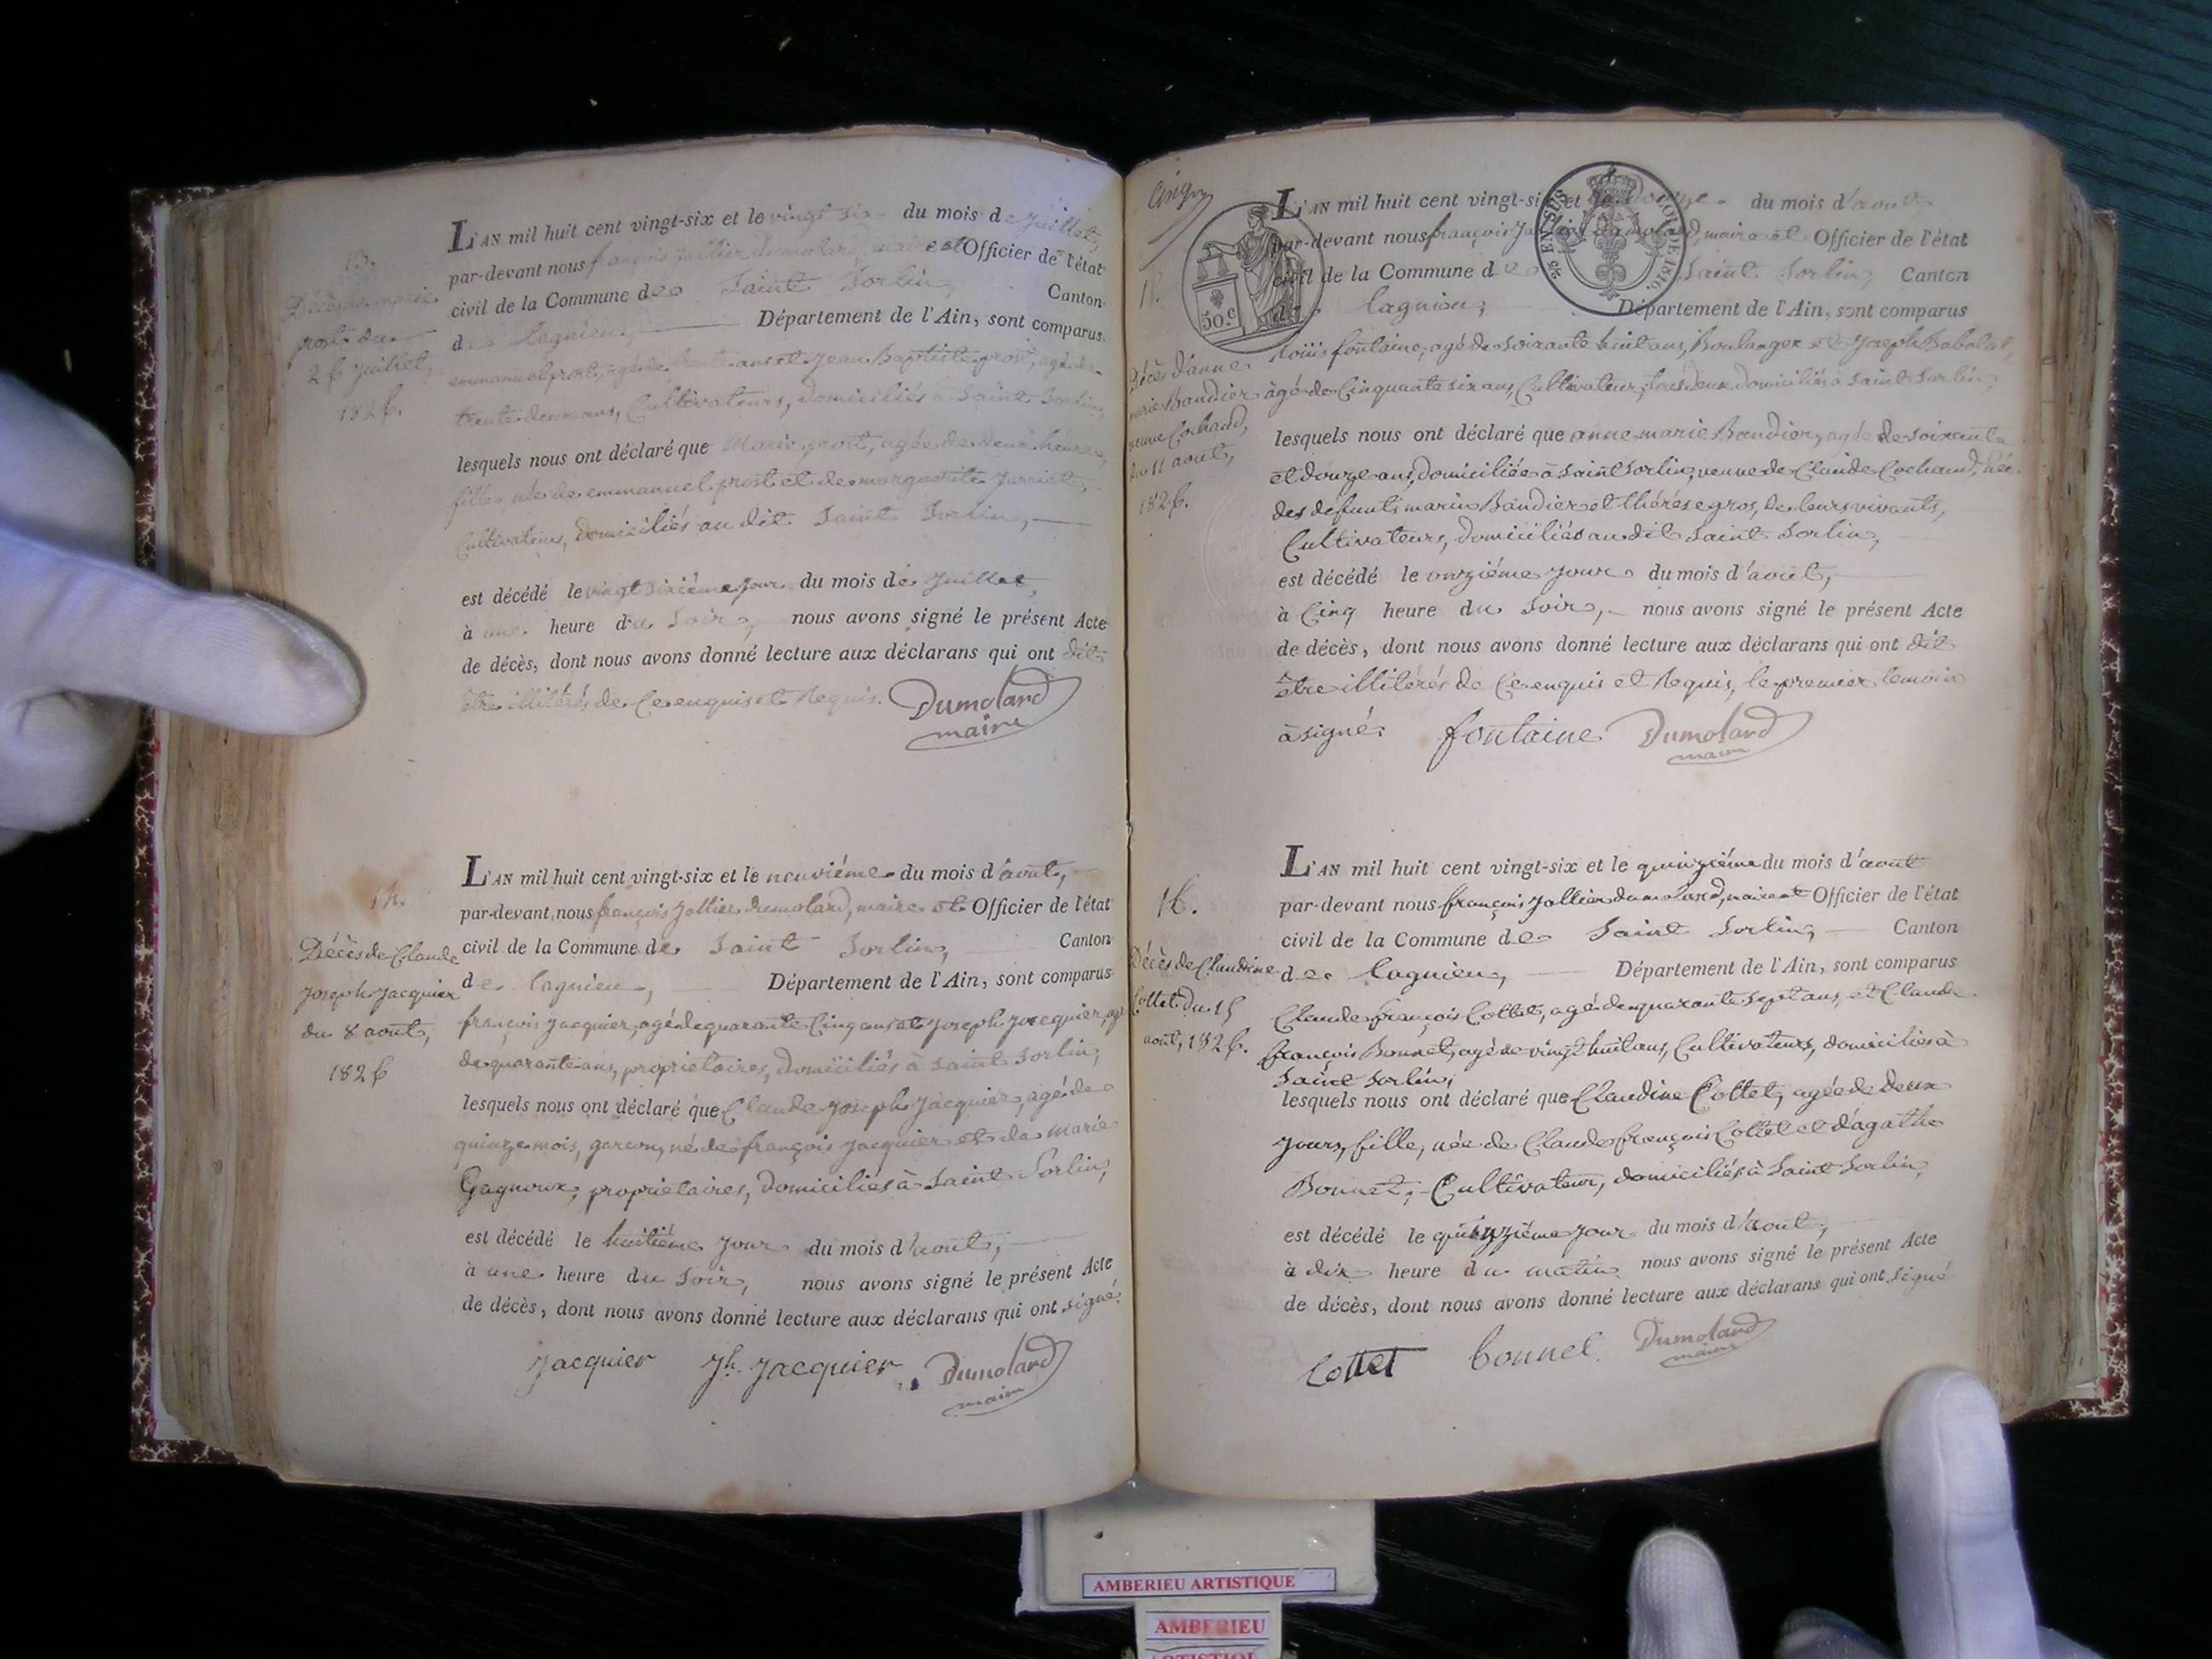 13.
Décès de marie
prost du
26 juillet,
1826.
L'AN mil huit cent vingt-six et le vingt six du mois de juillet,
par-devant nous françois Jollier dumolard, maire et Officier de l'état
civil de la Commune de Saint Sorlin, Canton
de lagnieu, Département de l'Ain, sont comparus
emmanuel prost, agé de trente ans et Jean Baptiste prost, agé de
trente deux ans, Cultivateurs, domiciliés à Saint Sorlin,
lesquels nous ont déclaré que Marie prost, agée de deux heures,
fille, née de emmanuel prost et de marguerite
Cultivateurs, domiciliés au dit Saint Sorlin,
est décédé le vingt sixième jour du mois de juillet,
à une heure du Soir, nous avons signé le présent Acte
de décès, dont nous avons donné lecture aux déclarans qui ont dit
être illitérés de Ce enquis et Requis. Dumolard
maire
14.
Décès de Claude
joseph Jacquier
du 8 aout,
1826
L'AN mil huit cent vingt-six et le neuvième du mois d'aout,
par-devant nous françois Jollier dumolard, maire et Officier de l'état
civil de la Commune de Saint Sorlin, Canton
de lagnieu, Département de l'Ain, sont comparus
françois jacquier, agé de quarante Cinq ans et joseph jacquier, agé
de quarante ans, proprietaires, domiciliés à Saint Sorlin,
lesquels nous ont déclaré que Claude joseph Jacquier, agé de
quinze mois, garcon, né de françois jacquier et de marie
Gagneux, proprietaires, domiciliés à Saint Sorlin,
est décédé le huitième jour du mois d'aout,
à une heure du Soir, nous avons signé le présent Acte
de décès, dont nous avons donné lecture aux déclarans qui ont signé.
Jacquier Jh. Jacquier Dumolard
maire
15.
50.c
5/6 EN SUS
LOI DE 1816.
Décès d'anne
marie Baudier
veuve Cochaud,
du 11 aout,
1826.
L'AN mil huit cent vingt-six et le douze du mois d'aout,
par-devant nous françois Jollier dumolard, maire et Officier de l'état
civil de la Commune de Saint Sorlin, Canton
de lagnieu, Département de l'Ain, sont comparus
louis fontaine, agé de soixante huit ans, Boulanger et joseph Babolat,
àgé de Cinquante six ans, Cultivateur, tous deux domiciliés à Saint Sorlin,
lesquels nous ont déclaré que anne marie Baudier, agée de soixante
et douze ans, domiciliée à Saint Sorlin, veuve de Claude Cochaud, née
des defunts marin Baudier et thérèse gros, de leurs vivants,
Cultivateurs, domiciliés au dit Saint Sorlin,
est décédé le onzième jour du mois d'aout,
à Cinq heure du Soir, nous avons signé le présent Acte
de décès, dont nous avons donné lecture aux déclarans qui ont dit
être illitérés de Ce enquis et Requis, le premier temoin
à signé. fontaine Dumolard
maire
16.
Décès de Claudine
Cottet du 15
aout, 1826.
L'AN mil huit cent vingt-six et le quinzième du mois d'aout
par-devant nous françois Jollier dumolard, maire et Officier de l'état
civil de la Commune de Saint Sorlin, Canton
de lagnieu, Département de l'Ain, sont comparus
Claude françois Cottet, agé de quarante sept ans, et Claude
françois Bonnet, agé de vingt huit ans, Cultivateurs, domiciliés à
Saint Sorlin,
lesquels nous ont déclaré que Claudine Cottet, agée de deux
jours, fille, née de Claude françois Cottet et d'agathe
Bonnet, Cultivateurs, domiciliés à Saint Sorlin,
est décédé le quinzième jour du mois d'aout,
à dix heure du matin nous avons signé le présent Acte
de décès, dont nous avons donné lecture aux déclarans qui ont signé
Cottet bonnet Dumolard
maire
AMBERIEU ARTISTIQUE
AMBERIEU
ARTISTIQUE